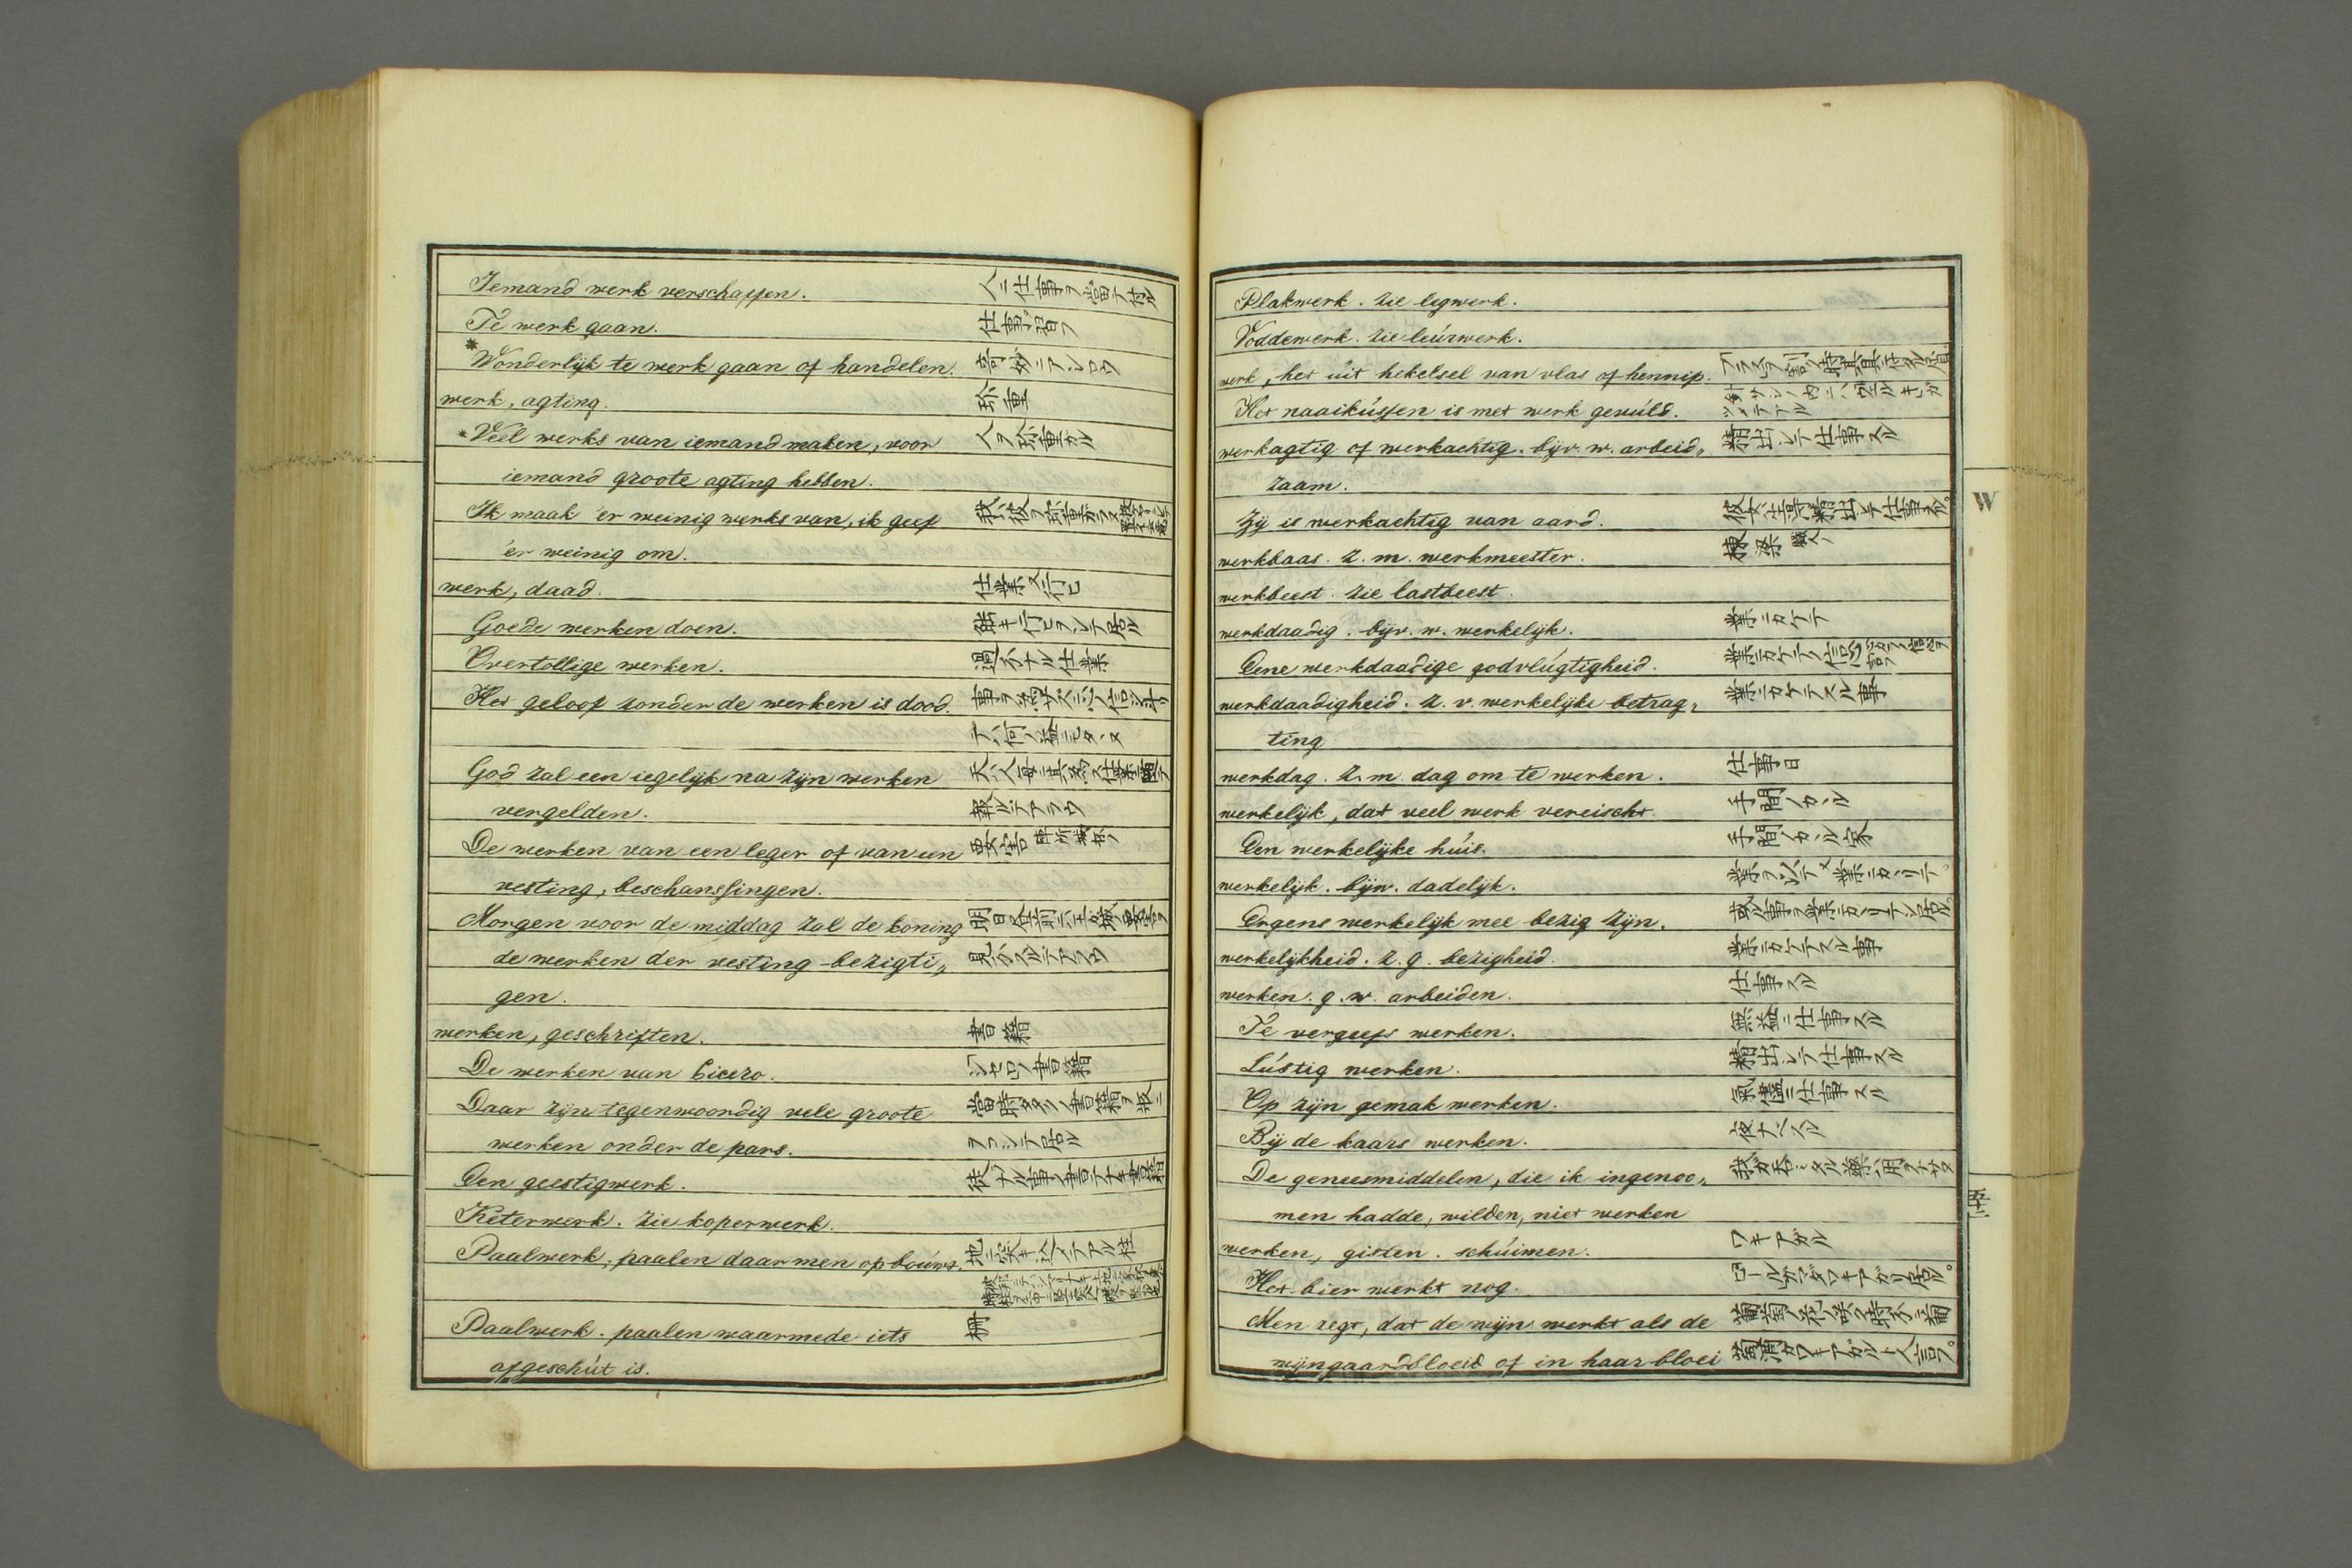 Iemand werk verschaffen. 人ニ仕事ヲ當テ付ル
Te werk gaan. 仕事ヲ習フ
*Wonderlijk te werk gaan of handelen. 奇妙ニアシロウ
werk, agting. 珍重
*Veel werks van iemand maken, voor 人ヲ珍重ガル
iemand groote agting hebben.
Ik maak 'er weinig werks van, ik geef
'er weinig om.
werk, daad. 仕業又行ヒ
Goede werken doen. 能キ行ヒヲシテ居ル
Overtollige werken. 過分ナル仕業
Het geloof zonder de werken is dood.
テハ何ノ益ニモタヽヌ
God zal een iegelijk na zijn werken
vergelden. 報ルデアラウ
De werken van een leger of van een 要害
vesting, beschanssingen.
Morgen voor de middag zal de koning
de werken der vesting bezigti„ 見分スルデアラウ
gen.
werken, geschriften. 書籍
De werken van Cicero. シセロノ書籍
Daar zijn tegenwoordig vele groote 當時タクサン書籍ヲ板ニ
werken onder de pars. ヲコシテ居ル
Een geestigwerk.
Keterwerk. zie koperwerk.
Paalwerk, paalen daar men op bouwt. 地ニ突キ込ンデアル柱
Paalwerk. paalen waarmede iets 柵
afgeschút is.
Plakwerk. zie legwerk.
Voddewerk. zie leúrwerk.
werk, het úit hekelsel van vlas of hennip.
Het naaikússen is met werk gevúld.
werkagtig of werkachtig. bijv. w. arbeid„ 精出シテ仕事スル
zaam.
Zij is werkachtig van aard.
werkbaas. z. m. werkmeester. 棟梁 職人ノ
werkbeest. zie lastbeest.
werkdaadig. bijv. w. werkelijk. 業ニカケテ
Eene werkdaadige godvlúgtigheid.
werkdaadigheid. z. v. werkelijke betrag„ 業ニカケテスル事
ting
werkdag. z. m. dag om te werken. 仕事日
werkelijk, dat veel werk vereischt. 手間ノカヽル
Een werkelijke húis. 手間ノカヽル家
werkelijk. bijw. dadelijk. 業ヲ以テ又業ニカヽリテ。
Ergens werkelijk mee bezig zijn. 或ル事ヲ業ニカケテシテ居ル。
werkelijkheid. z. g. bezigheid. 業ニカケテスル事
werken. g. w. arbeiden. 仕事スル
Te vergeefs werken. 無益ニ仕事スル
Lústig werken. 精出シテ仕事スル
Op zijn gemak werken. 氣儘ニ仕事スル
Bij de kaars werken. 夜ナベスル
De geneesmiddelen, die ik ingenoo„ 我ガ呑ミタル藥ハ用ヲナサヌ
men hadde, wilden, niet werken
werken, gisten. schúimen. ワキアガル
Het bier werkt nog. ビールガマダワキアガリ居ル。
Men zegt, dat de wijn werkt als de 葡萄ノ花ノ咲ク時分ニ葡
wijngaard bloeid of in haar bloei 萄酒ガワキアガルト人ガ言フ。
W